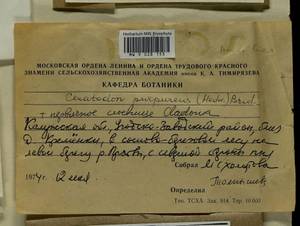 Herbarium MW Bryophyta
МОСКОВСКАЯ ОРДЕНА ЛЕНИНА И ОРДЕНА ТРУДОВОГО КРАСНОГО
ЗНАМЕНИ СЕЛЬСКОХОЗЯЙСТВЕННАЯ АКАДЕМИЯ имени К. А. ТИМИРЯЗЕВА
КАФЕДРА БОТАНИКИ
Ceratodon purpureus (Hedw.) Brid.
+ первичное слоевище Cladonia
Калужская об., Угодско-Заводский район, близ
Д. Кременки, в сосново-березовом лесу на
левом берегу р. Протвы, с северной
Собрал
1974 12 мая
Определил
Тип. ТСХА Зак. 914 Тир. 10 000